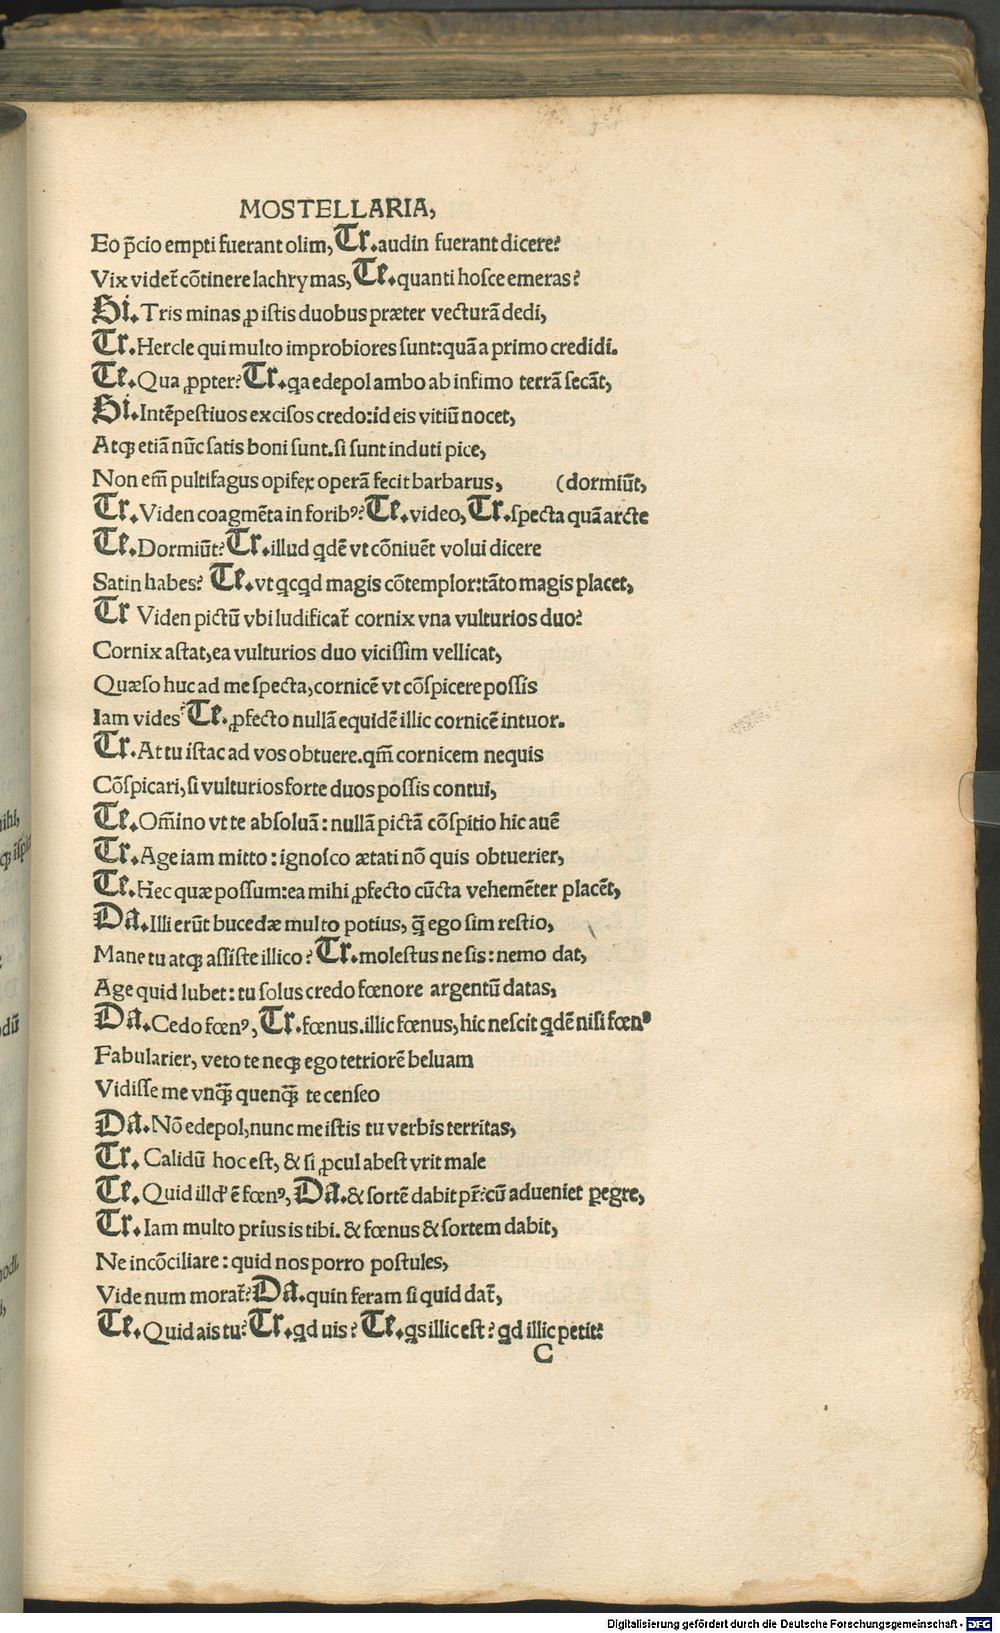 MOSTELLARIA,
Eo p̄cio empti fuerant olim, Tr. audin fuerant dicere?
Vix videt̄ cōtinere lachrymas, Te. quanti hosce emeras?
Si. Tris minas ꝓ istis duobus præter vecturā dedi,
Tr. Hercle qui multo improbiores sunt: quā a primo credidi.
Te. Qua ꝓpter? Tr. qa edepol ambo ab infimo terrā secāt,
Si. Intēpestiuos excisos credo: id eis vitiū nocet,
Atqꝫ etiā nūc satis boni sunt. si sunt induti pice,
Non em̄ pultifagus opifex operā fecit barbarus, (dormiūt,
Tr. Viden coagmēta in foribꝰ? Te. video, Tr. specta quā arcte
Te. Dormiūt? Tr. illud qdē vt cōniuēt volui dicere
Satin habes? Te. vt qcqd magis cōtemplor: tāto magis placet,
Tr Viden pictū vbi ludificat̄ cornix vna vulturios duo?
Cornix astat, ea vulturios duo vicissim vellicat,
Quæso huc ad me specta, cornicē vt cōspicere possis
Iam vides? Te. ꝓfecto nullā equidē illic cornicē intuor.
Tr. At tu istac ad vos obtuere. qm̄ cornicem nequis
Cōspicari, si vulturios forte duos possis contui,
Te. Om̄ino vt te absoluā: nullā pictā cōspitio hic auē
Tr. Age iam mitto: ignosco ætati nō quis obtuerier,
Te. Hec quæ possum: ea mihi ꝓfecto cūcta vehemēter placēt,
Da. Illi erūt bucedæ multo potius, q̄ ego sim restio,
Mane tu atqꝫ assiste illico? Tr. molestus ne sis: nemo dat,
Age quid lubet: tu solus credo fœnore argentū datas,
Da. Cedo fœnꝰ, Tr. fœnus. illic fœnus, hic nescit qdē nisi fœnꝰ
Fabularier, veto te neqꝫ ego tetriorē beluam
Vidisse me vnqꝫ̄ quenqꝫ̄ te censeo
Da. Nō edepol, nunc me istis tu verbis territas,
Tr. Calidū hoc est, & si ꝓcul abest vrit male
Te. Quid illd' ē fœnꝰ, Da. & sortē dabit pr̄? cū adueniet ꝑegre,
Tr. Iam multo prius is tibi. & fœnus & sortem dabit,
Ne incōciliare: quid nos porro postules,
Vide num morat̄? Da. quin feram si quid dat̄,
Te. Quid ais tu? Tr. qd uis? Te. qs illic est? qd illic petit?
C
Digitalisierung gefördert durch die Deutsche Forschungsgemeinschaft - DFG